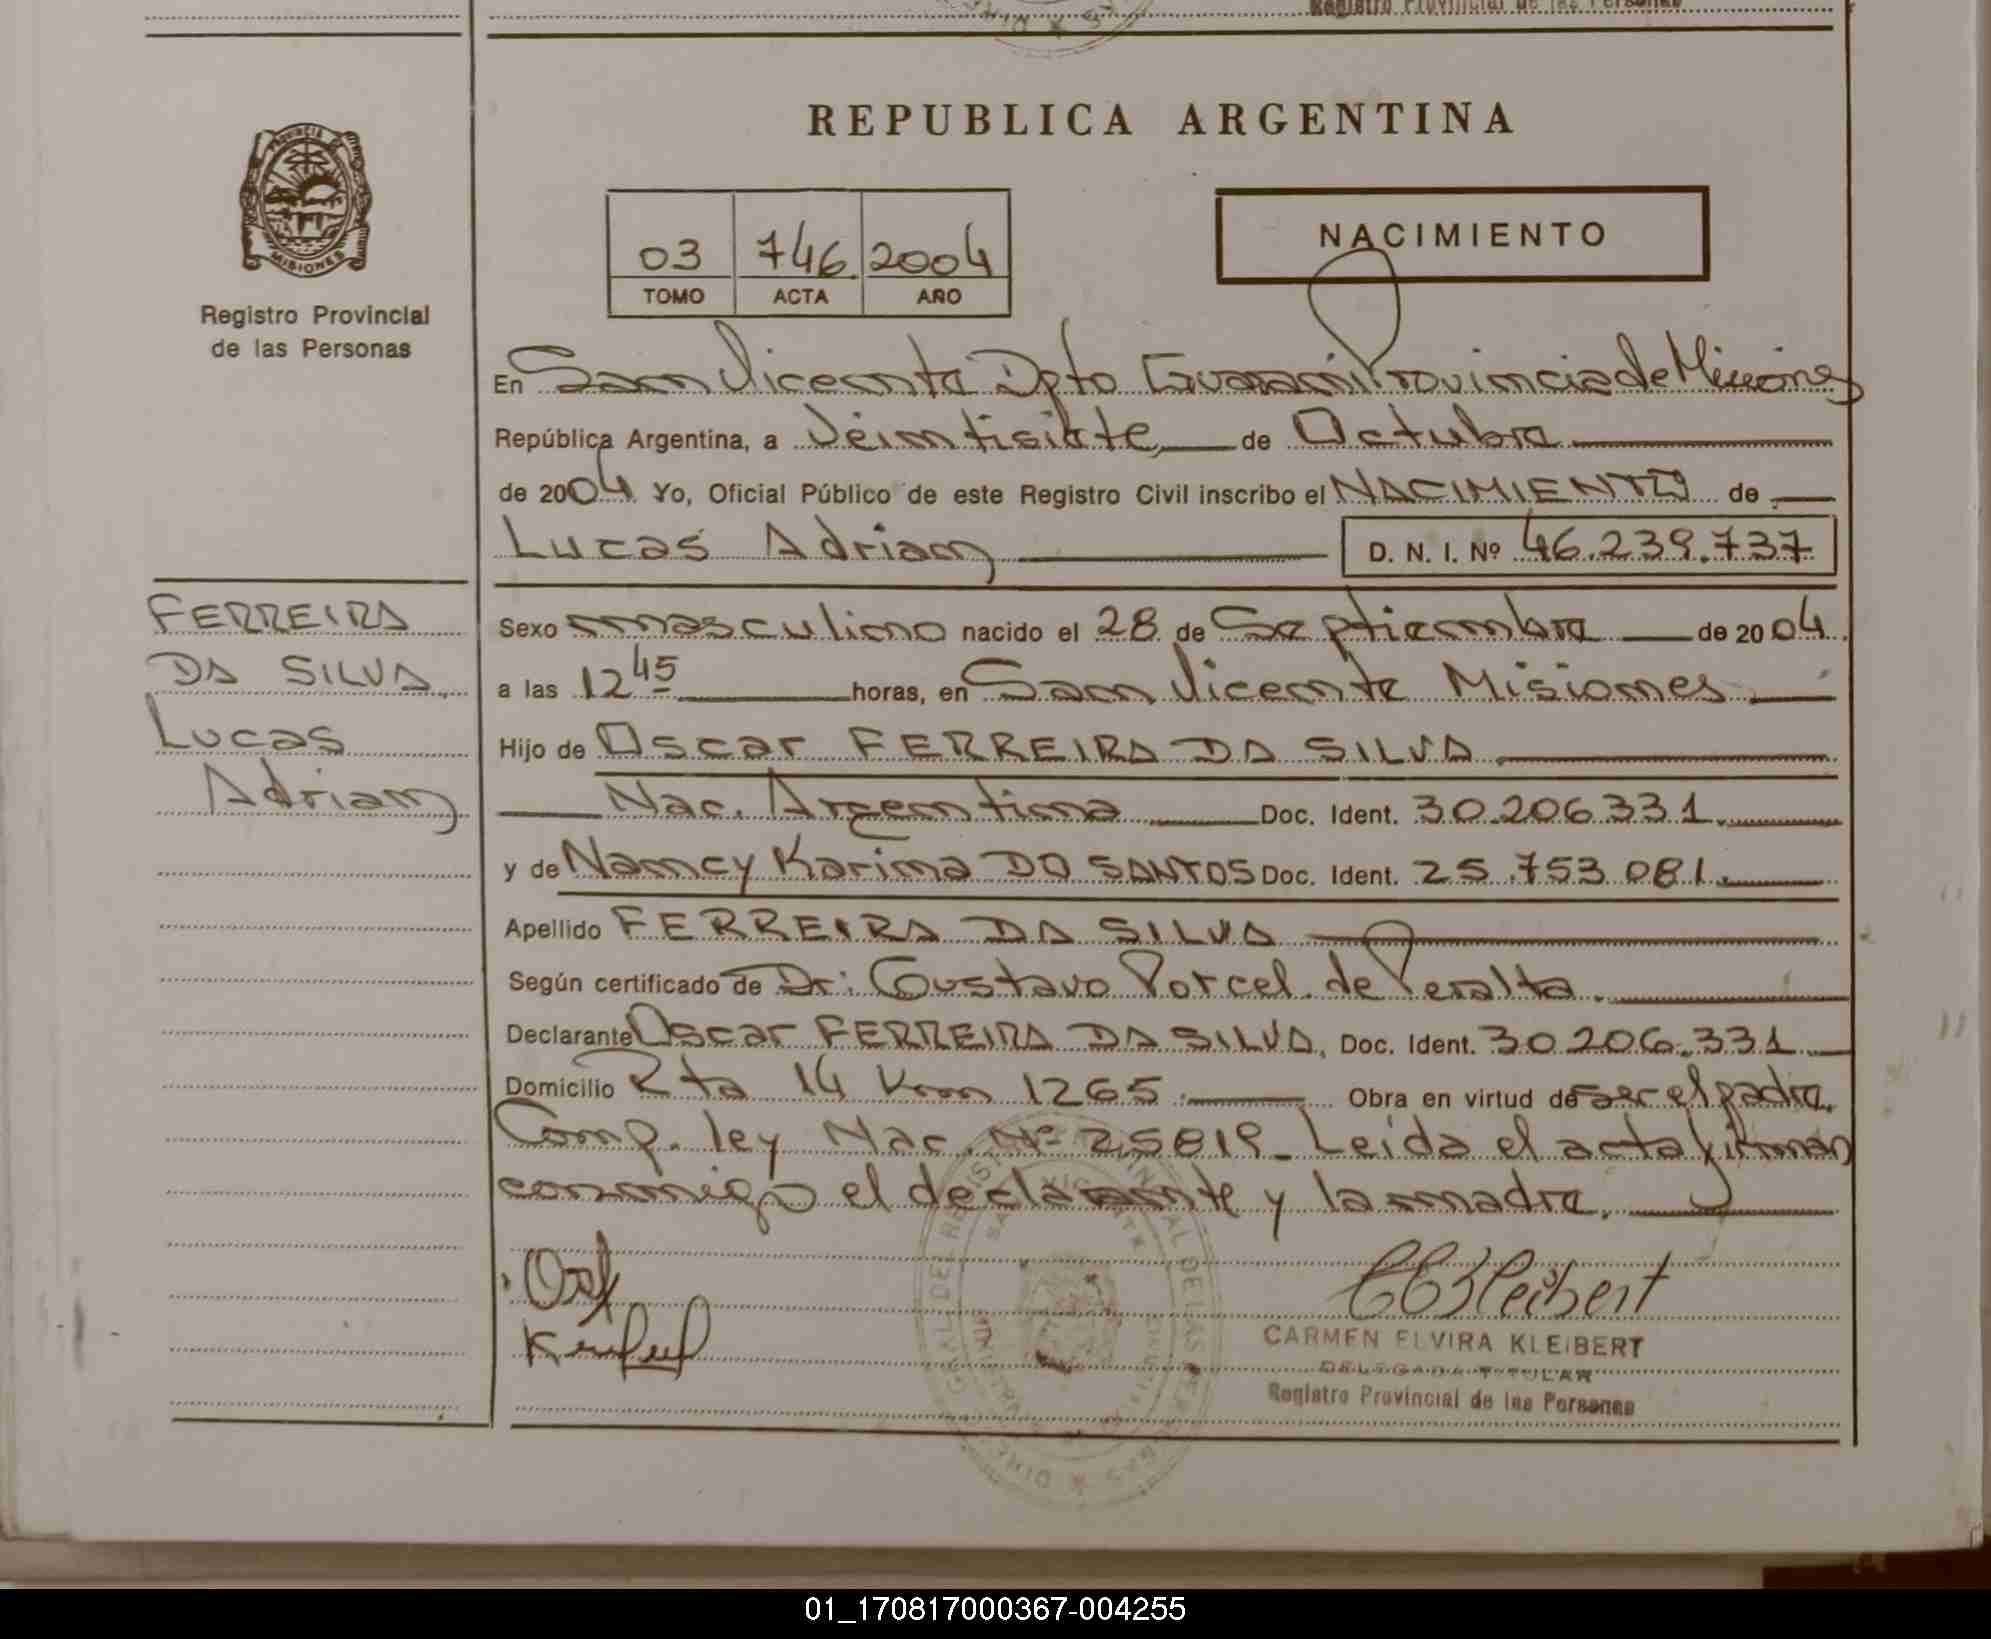 Registro Provincial de las Personas
REPUBLICA ARGENTINA
PROVINCIA
MISIONES
Registro Provincial
de las Personas
03 746 2004
TOMO ACTA AÑO
NACIMIENTO
En San Vicente Dpto Guaraní Provincia de Misiones
República Argentina, a Veintisiete de Octubre
de 2004 Yo, Oficial Público de este Registro Civil inscribo el NACIMIENTO de
Lucas Adrian D. N. I. Nº 46.239.737
FERREIRA
DA SILVA
Lucas
Adrian
Sexo masculino nacido el 28 de Septiembre de 2004
a las 12 45 horas, en San Vicente Misiones
Hijo de Oscar FERREIRA DA SILVA
Nac. Argentina Doc. Ident. 30.206.331
y de Nancy Karina DO SANTOS Doc. Ident. 25.753.081
Apellido FERREIRA DA SILVA
Según certificado de Dr: Gustavo Porcel de Peralta.
Declarante Oscar FERREIRA DA SILVA, Doc. Ident. 30.206.331
Domicilio Rta 14 Km 1265 Obra en virtud de ser el padre.
Comp. ley Nac. Nº 25819. Leida el acta firman
conmigo el declarante y la madre.
CARMEN ELVIRA KLEIBERT
DELEGADA TITULAR
Registro Provincial de las Personas
01_170817000367-004255